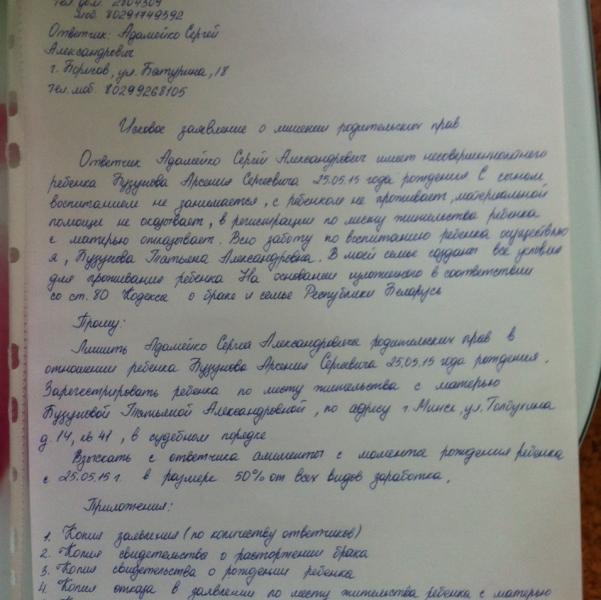 Тел. дом. 2804309
моб. 80291749592
Ответчик: Адамейко Сергей
Александрович
г. Борисов, ул. Батурина, 18
Тел. моб. 80299268105
Исковое заявление о лишении родительских прав
Ответчик Адамейко Сергей Александрович имеет несовершеннолетнего
ребенка Бузунова Арсения Сергеевича 25.05.15 года рождения С сыном
воспитанием не занимается, с ребенком не проживает, материальной
помощи не оказывает, в регистрации по месту жительства ребенка
с матерью отказывает. Всю заботу по воспитанию ребенка осуществляю
я, Бузунова Татьяна Александровна. В моей семье созданы все условия
для проживания ребенка На основании изложенного в соответствии
со ст. 80 Кодекса о браке и семье Республики Беларусь
Прошу:
Лишить Адамейко Сергея Александровича родительских прав в
отношении ребенка Бузунова Арсения Сергеевича 25.05.15 года рождения.
Зарегестрировать ребенка по месту жительства с матерью
Бузуновой Татьяной Александровной, по адресу г. Минск, ул. Толбухина
д. 14, кв 41, в судебном порядке
Взыскать с ответчика алименты с момента рождения ребенка
с 25.05.15 г. в размере 50% от всех видов заработка.
Приложения:
1. Копия заявления (по количеству ответчиков)
2. Копия свидетельства о расторжении брака
3. Копия свидетельства о рождении ребенка
4. Копия отказа в заявлении по месту жительства ребенка с матерью